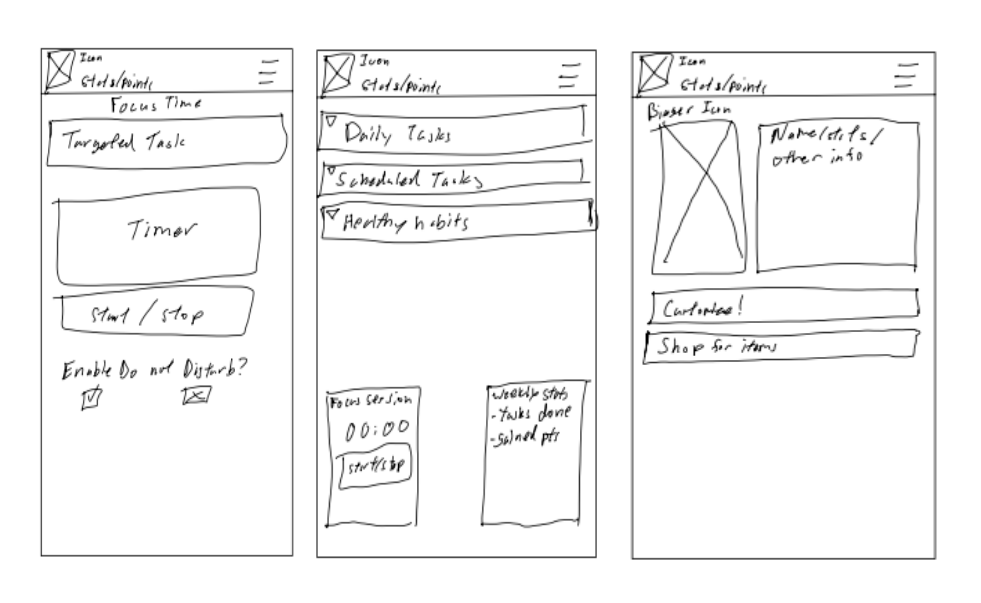 Icon
Stats/points
Focus Time
Targeted Task
Timer
start / stop
Enable Do not Disturb?
Icon
Stats/points
Daily Tasks
Scheduled Tasks
Healthy habits
Focus Session
00:00
start/stop
weekly stats
- Tasks done
- gained pts
Icon
Stats/points
Bigger Icon
Name/stats/
other info
Customize!
Shop for items